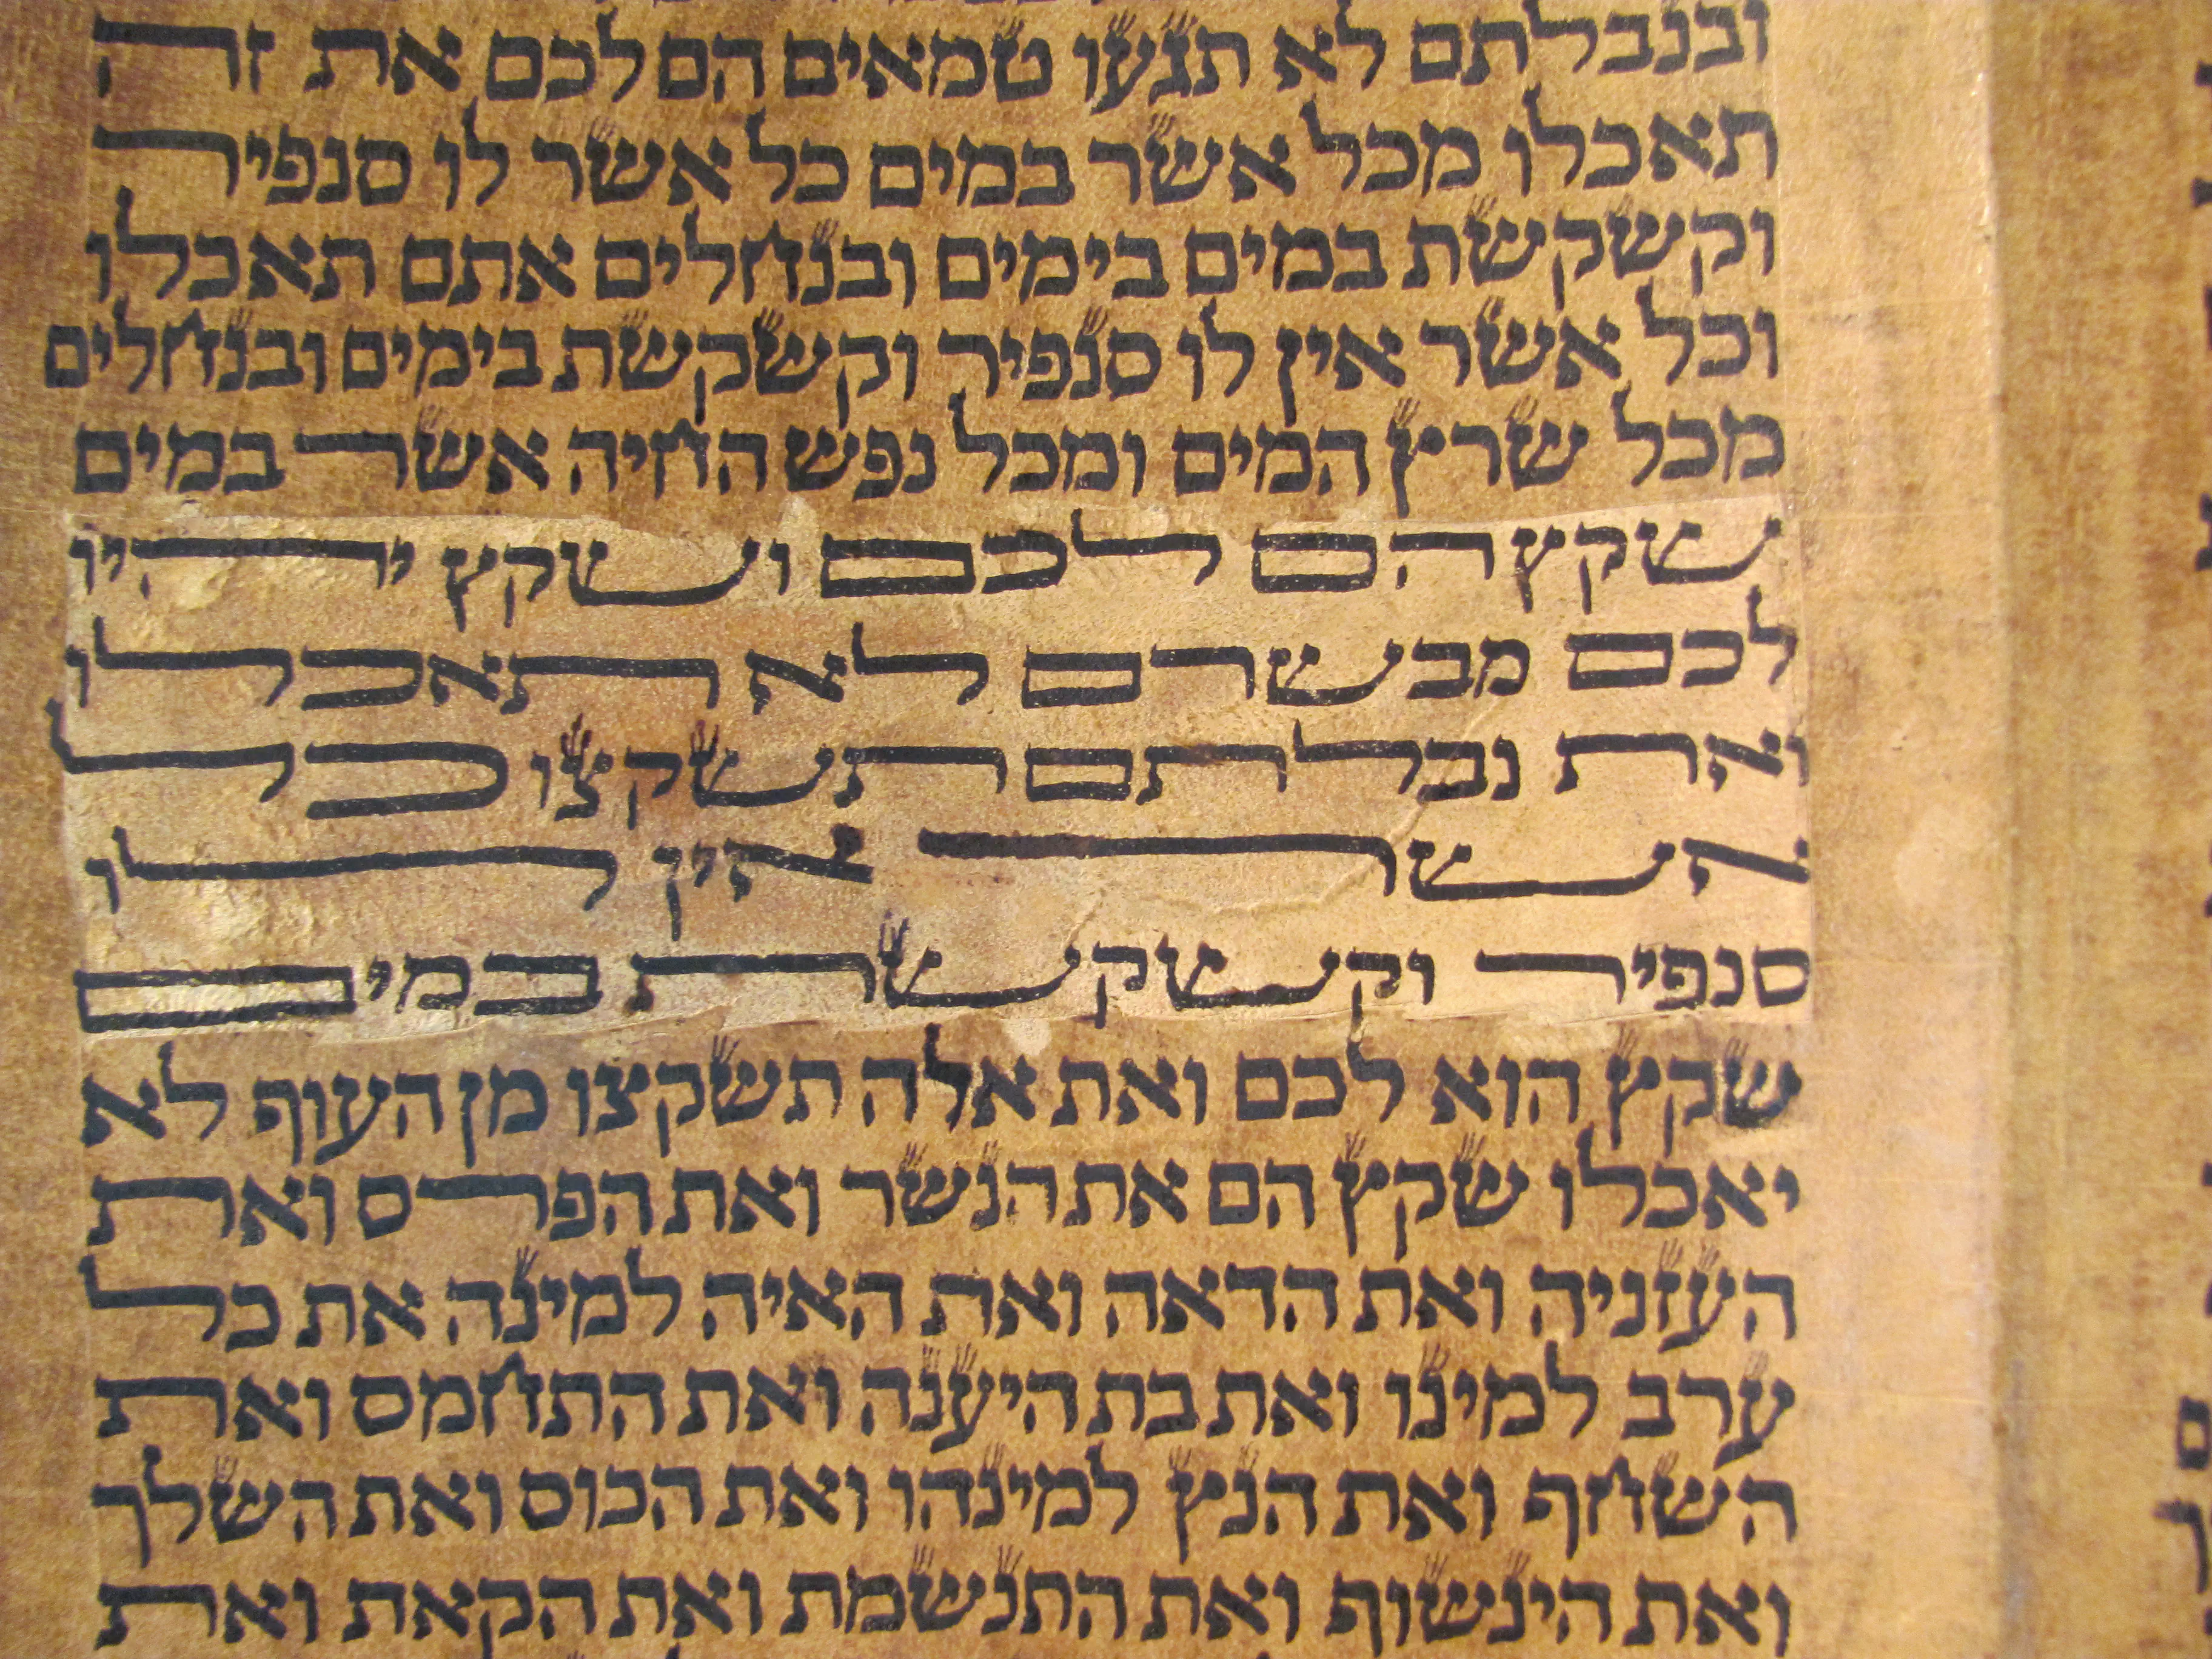 ובנבלתם לא תגעו טמאים הם לכם את זה
תאכלו מכל אשר במים כל אשר לו סנפיר
וקשקשת במים בימים ובנחלים אתם תאכלו
וכל אשר אין לו סנפיר וקשקשת בימים ובנחלים
מכל שרץ המים ומכל נפש החיה אשר במים
שקץ הם לכם ושקץ יהיו
לכם מבשרם לא תאכלו
ואת נבלתם תשקצו כל
אשר אין לו
סנפיר וקשקשת במים
שקץ הוא לכם ואת אלה תשקצו מן העוף לא
יאכלו שקץ הם את הנשר ואת הפרס ואת
העזניה ואת הדאה ואת האיה למינה את כל
ערב למינו ואת בת היענה ואת התחמס ואת
השחף ואת הנץ למינהו ואת הכוס ואת השלך
ואת הינשוף ואת התנשמת ואת הקאת ואת